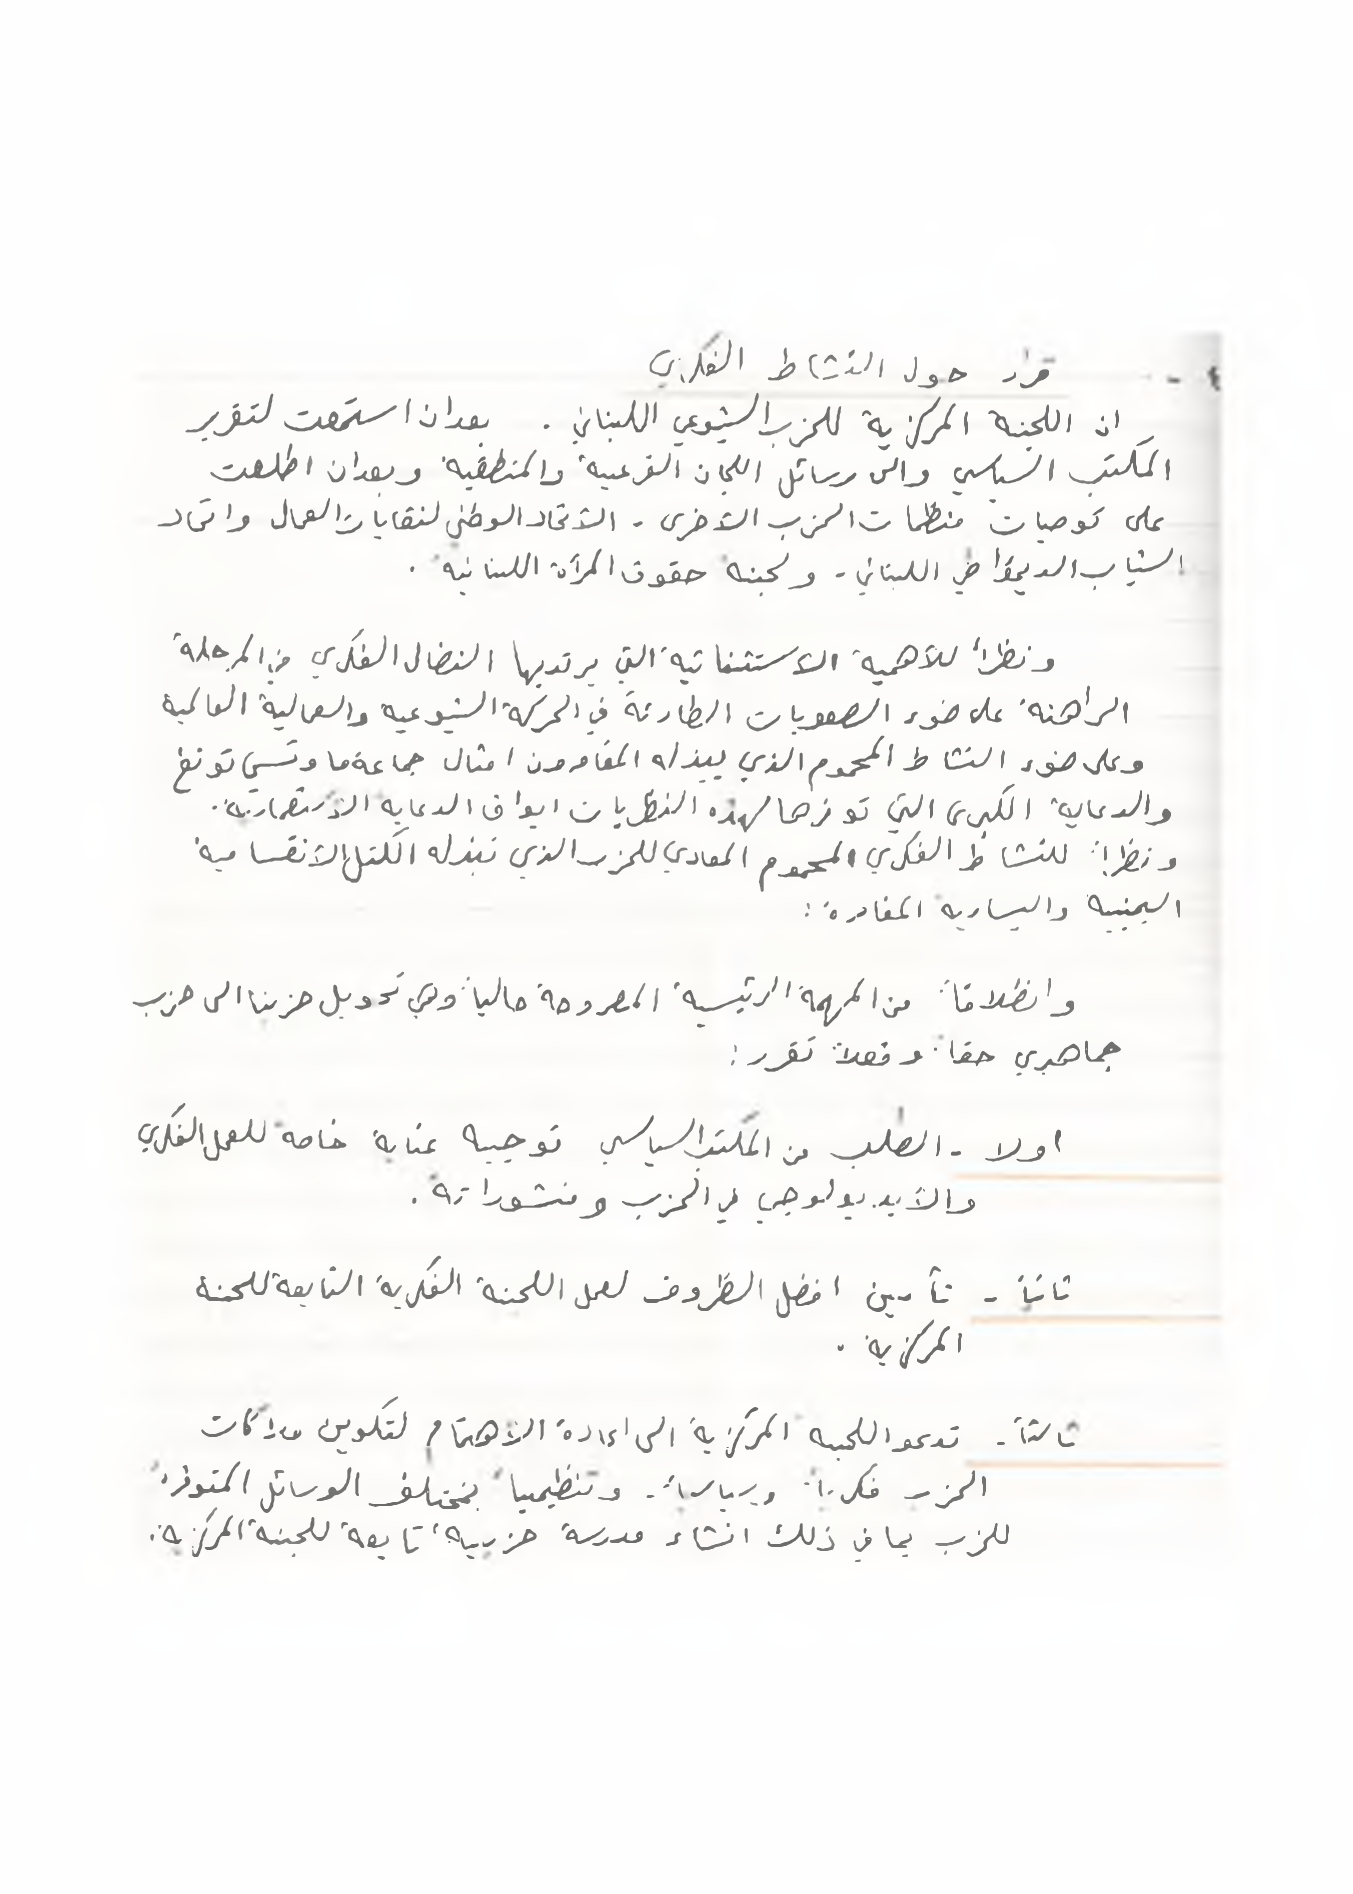 ٤ - قرار حول النشاط الفكري
ان اللجنة المركزية للحزب الشيوعي اللبناني . بعد ان استمعت لتقرير
المكتب السياسي والى رسائل اللجان الفرعية والمنطقية وبعد ان اطلعت
على توصيات منظمات الحزب الأخرى - الاتحاد الوطني لنقابات العمال واتحاد
الشباب الديمقراطي اللبناني - ولجنة حقوق المرأة اللبنانية .
ونظراً للأهمية الاستثنائية التي يرتديها النضال الفكري في المرحلة
الراهنة على ضوء الصعوبات الطارئة في الحركة الشيوعية والعمالية العالمية
وعلى ضوء النشاط المحموم الذي يبذله المغامرون امثال جماعة ماوتسي تونغ
والدعاية الكبرى التي توفرها لهذه النظريات ابواق الدعاية الاستعمارية .
ونظراً للنشاط الفكري المحموم المعادي للحزب الذي تبذله الكتل الانقسامية
اليمينية واليسارية المغامرة :
وانطلاقاً من المهمة الرئيسية المطروحة حالياً وهي تحويل حزبنا الى حزب
جماهيري حقاً وفعلاً تقرر :
اولا - الطلب من المكتب السياسي توجيه عناية خاصة للعمل الفكري
والأيديولوجي في الحزب ومنشوراته .
ثانياً - تأمين افضل الظروف لعمل اللجنة الفكرية التابعة للجنة
المركزية .
ثالثاً - تدعو اللجنة المركزية الى اعادة الاهتمام لتكوين ملاكات
الحزب فكرياً وسياسياً - وتنظيمياً بمختلف الوسائل المتوفرة
للحزب بما في ذلك انشاء مدرسة حزبية تابعة للجنة المركزية .